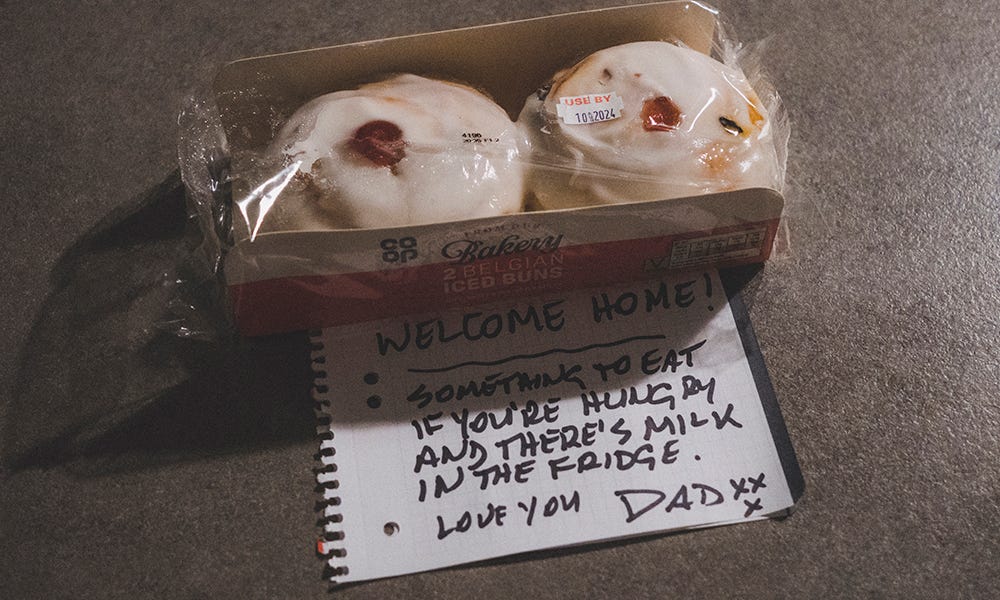 USE BY
10 2024
CO
OP
FROM OUR
Bakery
2 BELGIAN
ICED BUNS
WELCOME HOME!
SOMETHING TO EAT
IF YOU'RE HUNGRY
AND THERE'S MILK
IN THE FRIDGE.
LOVE YOU DAD xx
x